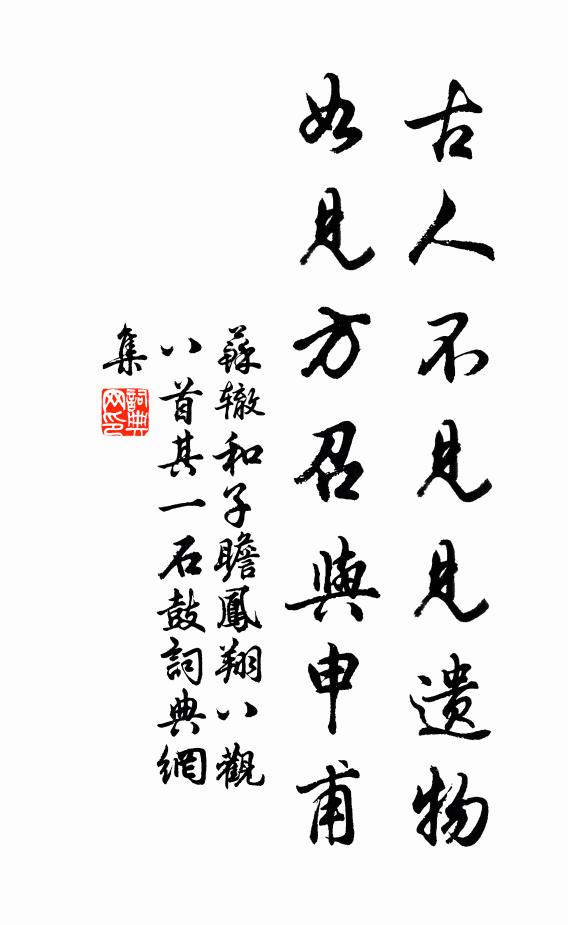 古人不見見遺物
如見方召與申甫
蘇轍和子瞻鳳翔八觀
八首其一石鼓詞典網
集
詞典網印